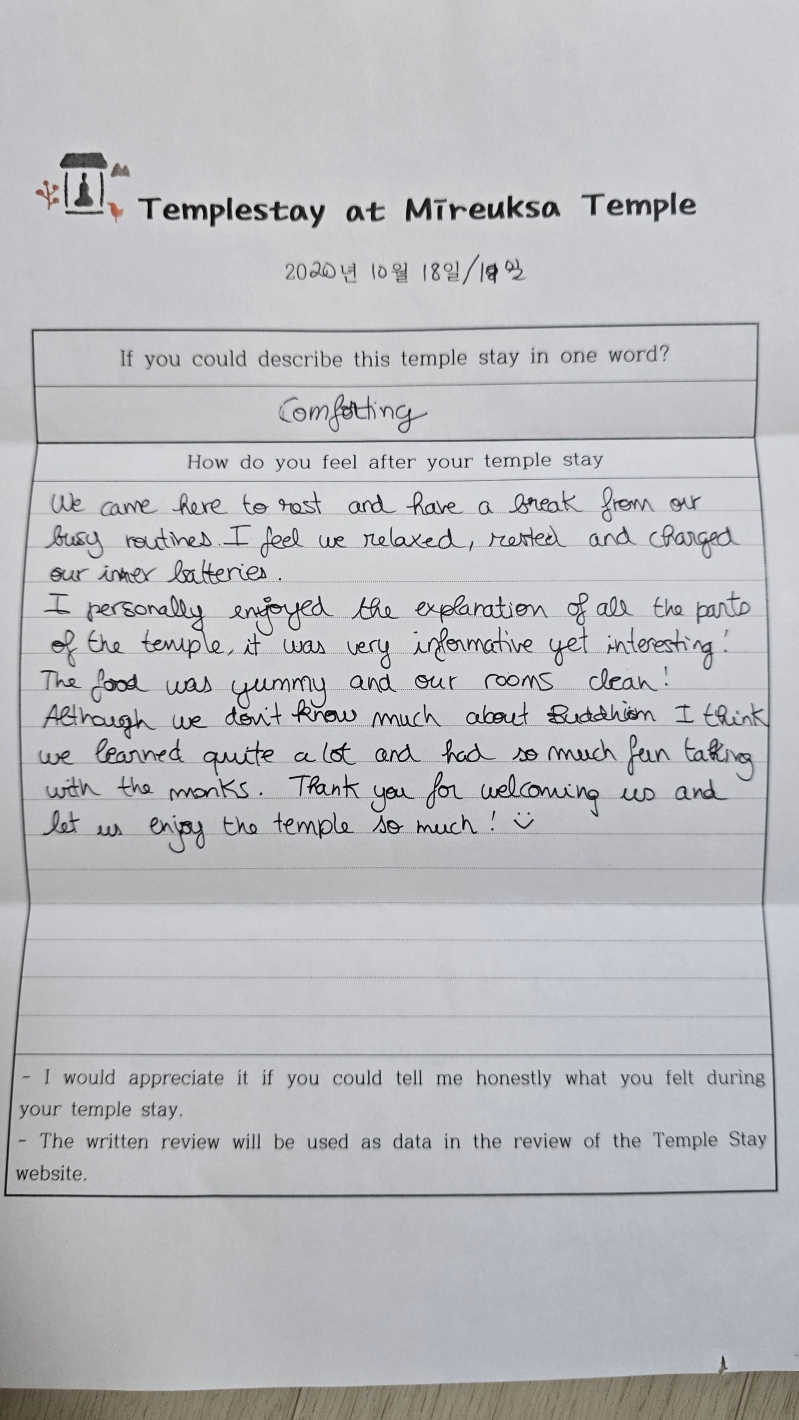 Templestay at Mīreuksa Temple
2020년 10월 18일/19일
If you could describe this temple stay in one word?
Comforting
How do you feel after your temple stay
We came here to rest and have a break from our
busy routines. I feel we relaxed, rested and charged
our inner batteries.
I personally enjoyed the explanation of all the parts
of the temple, it was very informative yet interesting!
The food was yummy and our rooms clean!
Although we don't know much about Buddhism I think
we learned quite a lot and had so much fun talking
with the monks. Thank you for welcoming us and
let us enjoy the temple so much! :)
- I would appreciate it if you could tell me honestly what you felt during
your temple stay.
- The written review will be used as data in the review of the Temple Stay
website.